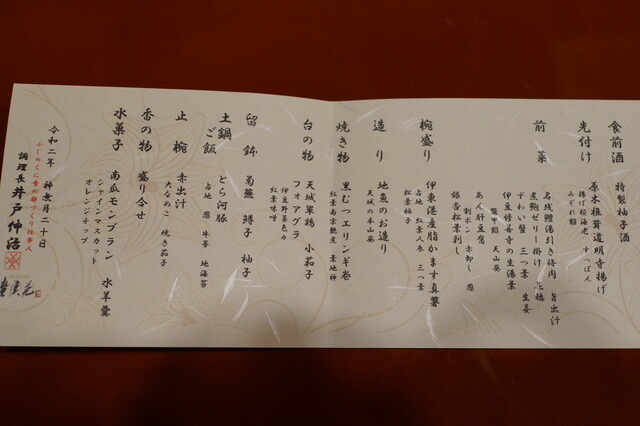 食前酒 特製柚子酒
先付け 原木椎茸道明寺揚げ
揚げ桜海老 すっぽん
みぞれ餡
前菜 名残鱧湯引き梅肉 旨出汁
煮鮑ゼリー掛け 花穂
ずわい蟹 三つ葉 生姜
伊豆修善寺の生湯葉
天山葵
あん肝豆腐
割ポン 赤卸し 葱
銀杏松葉刺し
椀盛り 伊東港産脂かます真薯
占地 紅葉人参 三つ葉
松葉柚子
造り 地魚のお造り
天城の本山葵
焼き物 黒むつエリンギ巻
紅葉南京艶煮 葉地神
台の物 天城軍鶏 小茄子
フォアグラ
伊豆野菜色々
紅葉味噌
留鉢 菊蕪 鱒子 柚子
土鍋ご飯 とら河豚
占地 葱 牛蒡 地海苔
止椀 赤出汁
大なめこ 焼き茄子
香の物 盛り合せ
水菓子 南瓜モンブラン 水羊羹
シャインマスカット
オレンジチップ
令和二年 神無月二十日
ふじのくに食の都づくり仕事人
調理長 井戸伸治